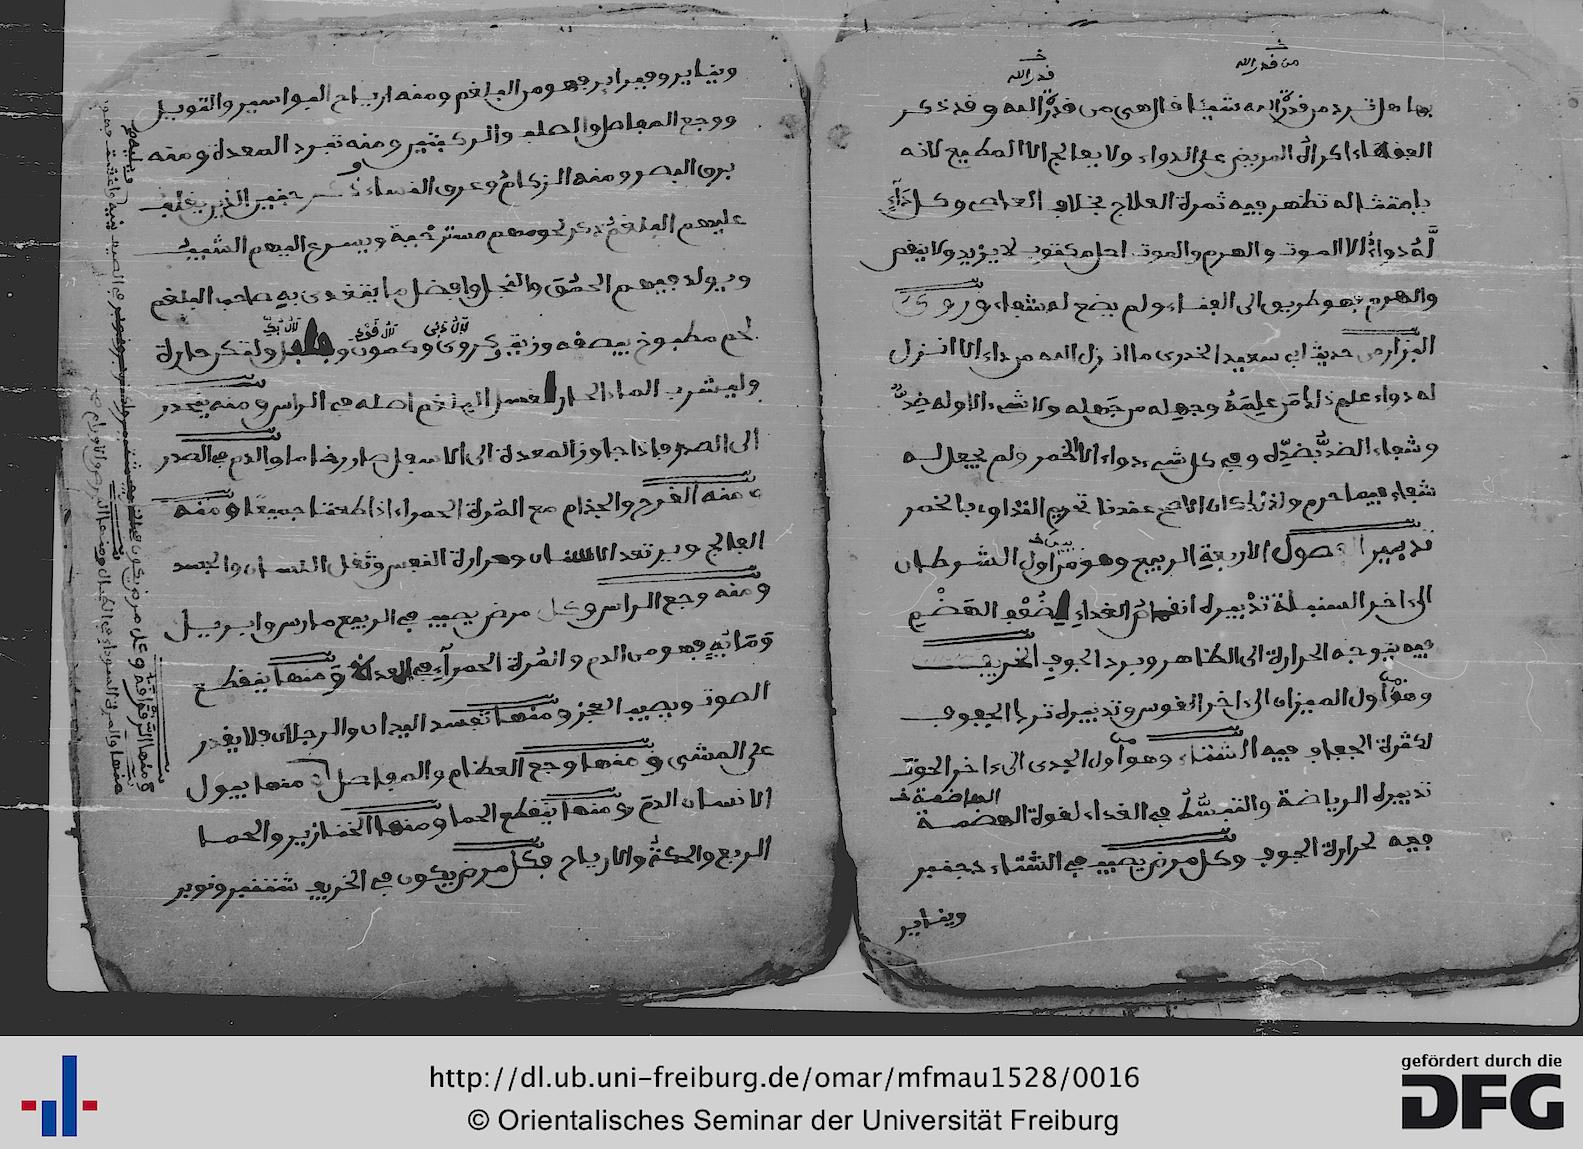 من قدر الله
قدر الله
بها هل ترد من قدرة الله شيئا قال هي من قدرة الله وقد ذكر
الفقهاء اكراه المريض على الدواء ولا يعالج الا المطيع لانه
بامتثاله تظهر فيه ثمرة العلاج بخلاف العاصي وكل داء
له دواء الا الموت والهرم والموت اجل مكتوب لا يزيد ولا ينقص
والهرم فهو طريق الى الفناء ولم يضع له شفاء وروى
البزار من حديث ابي سعيد الخدري ما انزل الله من داء الا انزل
له دواء علم ذلك من علمه وجهله من جهله ولا شيء الا وله ضد
وشفاء الضد بضده وفي كل شيء دواء الا الخمر ولم يجعل الله
شفاء فيما حرم ولذلك كان الاصح عندنا تحريم التداوي بالخمر
تدبير الفصول الاربعة الربيع وهو من اول الشرطان
الى اخر السنبلة تدبيره انقاص الغداء لضعف الهضم
فيه بتوجه الحرارة الى الظاهر وبرد الجوف الخريف
وهو من اول الميزان الى اخر القوس وتدبيره ترك الجفوف
لكثرة الجفاف فيه الشتاء وهو من اول الجدي الى اخر الحوت
تدبيره الرياضة والتبسط في الغداء لقوة الهضمة
الهاضمة
فيه لحرارة الجوف وكل مرض يصيب في الشتاء دجنبر
وينابر
وينابر وفبرابر فهو من البلغم ومنه ارياح البواسير والتوبل
ووجع المفاصل والصلب والركبتين ومنه تبرد المعدة ومنه
برق البصر ومنه الزكام وعرق النساء ذكر حنين الذين يغلب
عليهم البلغم تكر لحومهم مسترخية ويسرع اليهم الشيب
ويولد فيهم الحمق والنجل وافضل ما يتغدى به صاحب البلغم
لحم مطبوخ بيصفه وزيت وكروى وكمون ولتكن حارة
وليشرب الماء الحار البلغم اصله في الراس ومنه ينحدر
الى الصدر فاذا جاوز المعدة الى الاسفل صار رضاما والدم في الصدر
ومنه القرح والجذام مع المرة الحمراء اذا طعنا جميعا ومنه
الفالج ويرتعد الانسان وحرارة النفس وثقل اللسان والجسد
ومنه وجع الراس وكل مرض يصيب في الربيع مارس وابريل
ومايه فهو من الدم والمرة الحمراء في المعدة ومنها ينقطع
الصوت ويصيب العجز ومنها تفسد اليدان والرجلان فلا يقدر
على المشي ومنها وجع العظام والمفاصل ومنها يبول
الانسان الدم ومنها ينقطع الحما ومنها الخنازير والحما
الربع والحكة والارياح فكل مرض يكون في الخريف شتنبر ونوبر
http://dl.ub.uni-freiburg.de/omar/mfmau1528/0016
© Orientalisches Seminar der Universität Freiburg
gefördert durch die
DFG